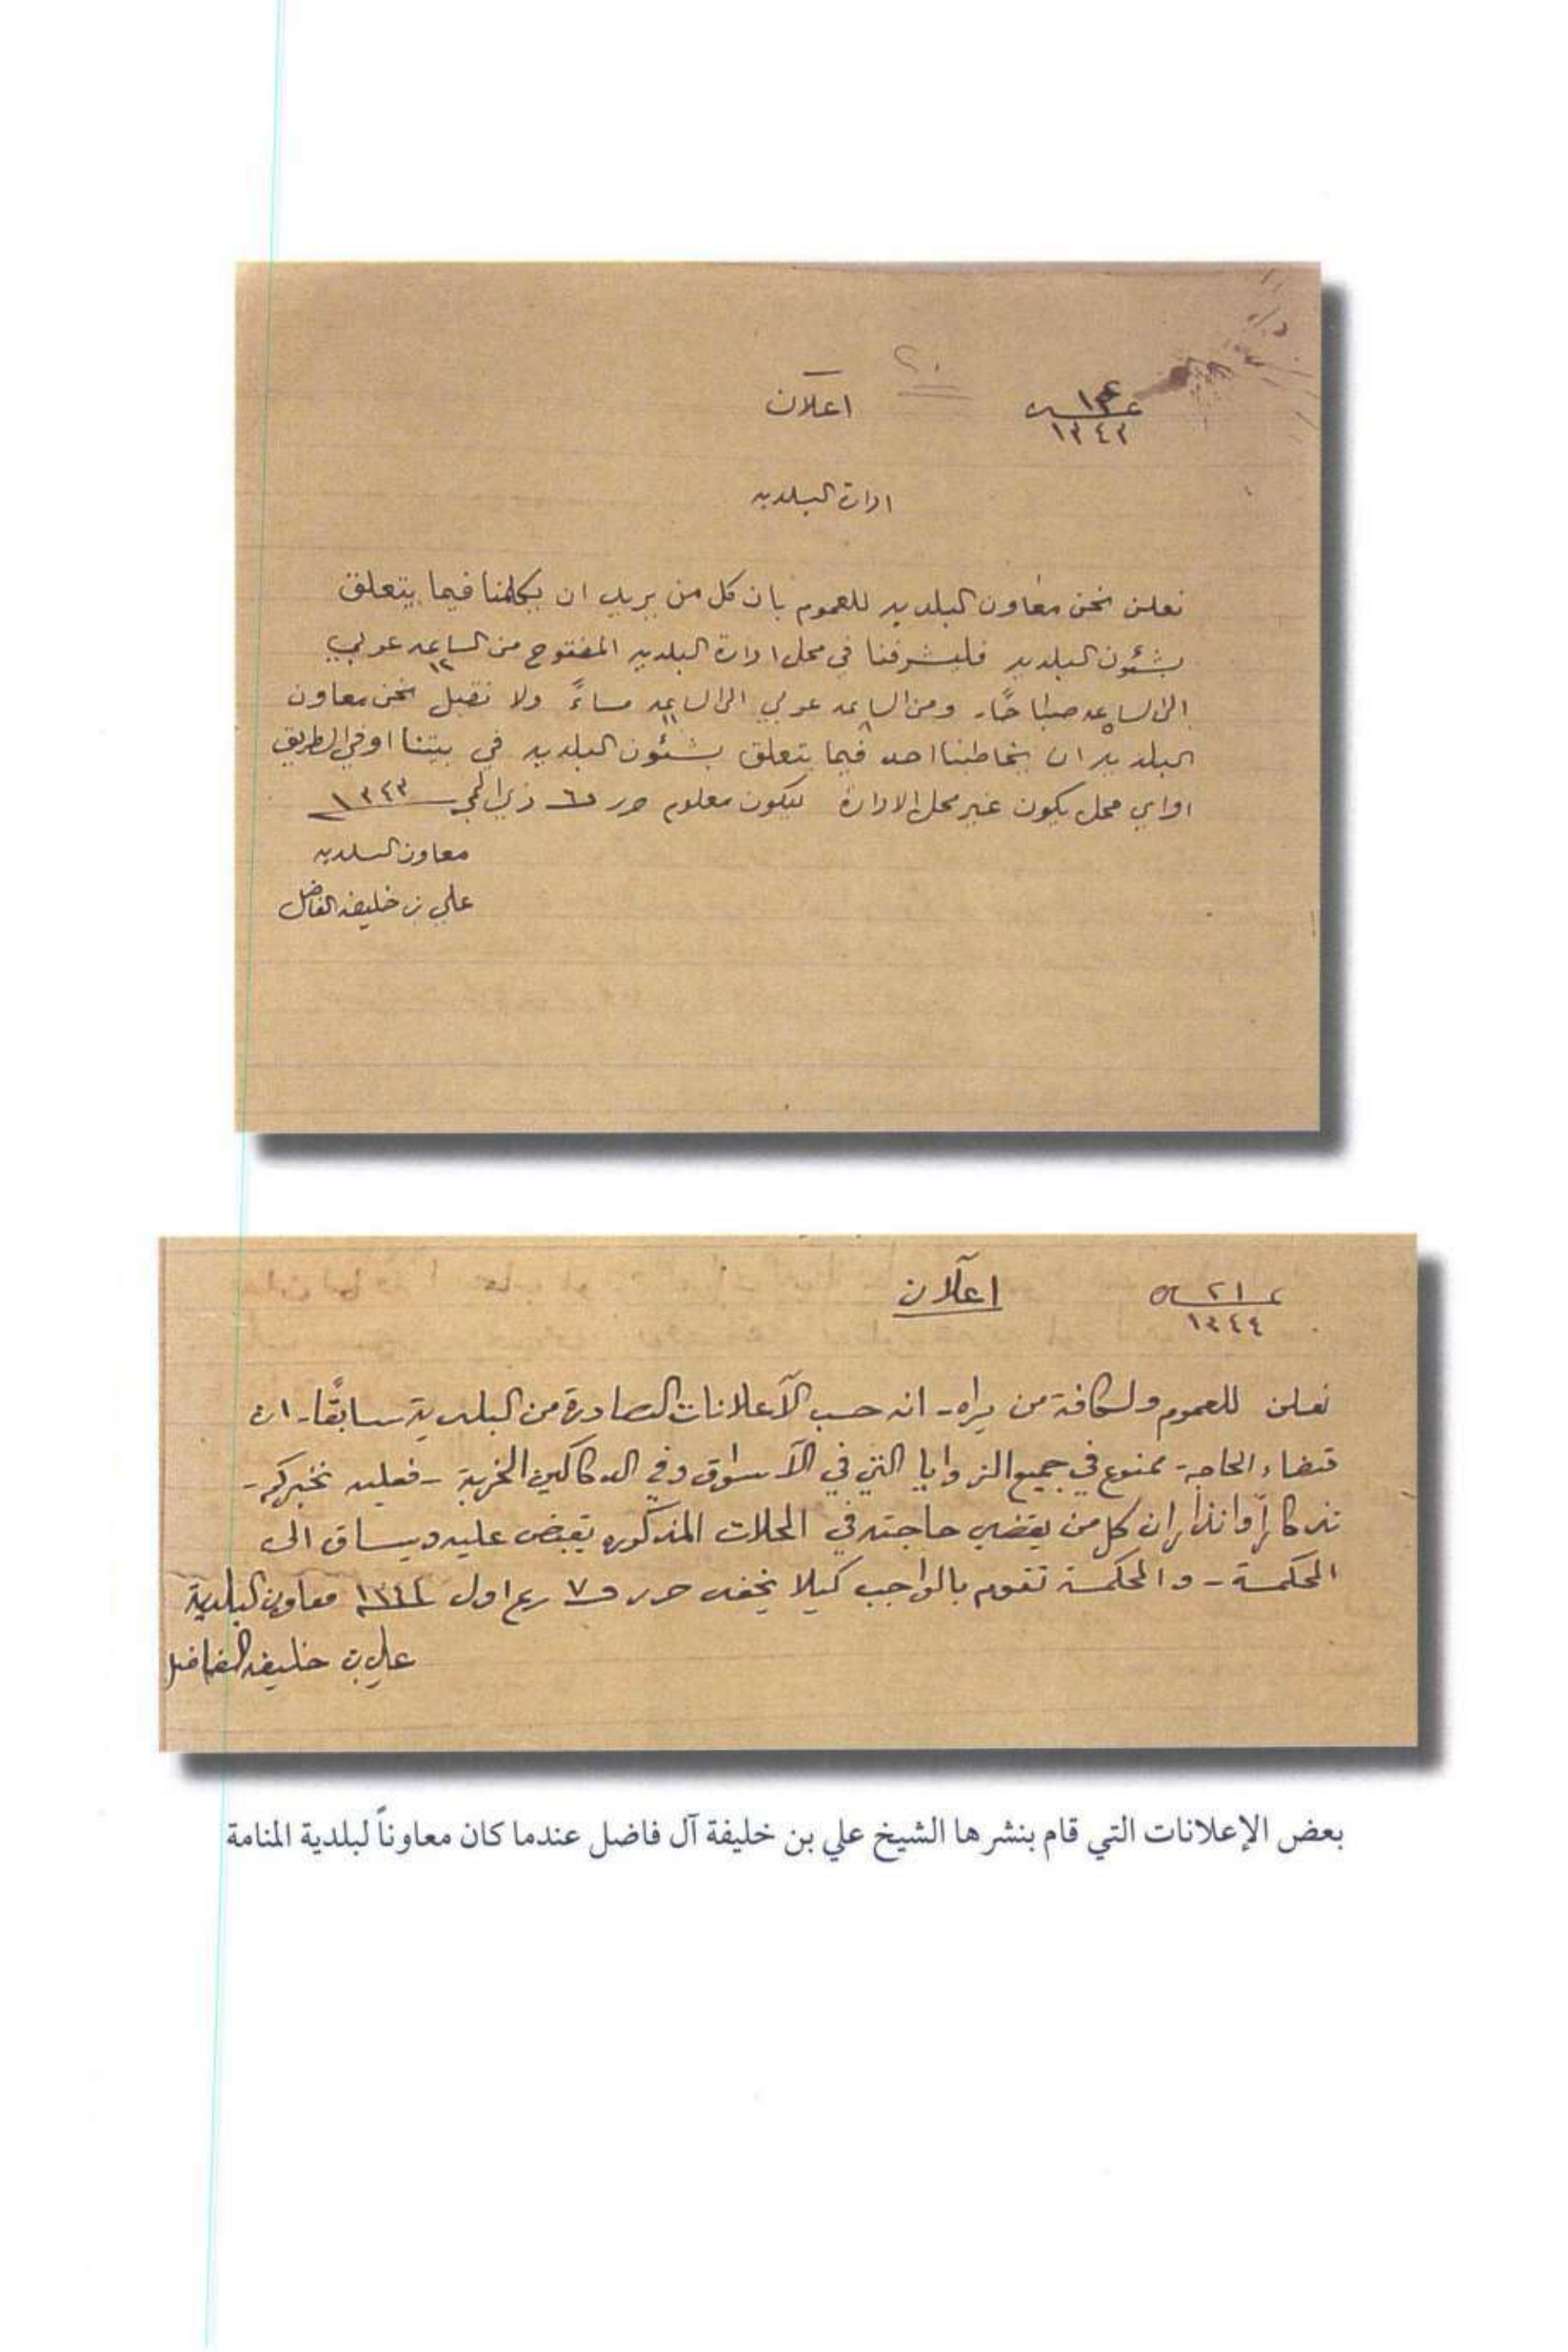 ٢٠
اعلان
١٣٤٣
ادارة البلديه
نعلن نحن معاون البلديه للعموم بان كل من يريد ان يكلمنا فيما يتعلق
بشئون البلديه فليشرفنا في محل ادارة البلديه المفتوح من الساعه ١٢ عربي
الى الساعه ٥ صباحًا. ومن الساعه ٨ عربي الى الساعه ١١ مساءً ولا نقبل نحن معاون
البلديه ان يخاطبنا احد فيما يتعلق بشئون البلديه في بيتنا او في الطريق
او اي محل يكون غير محل الادارة ليكون معلوم حرر في ٦ ذي الحجه ١٣٤٣
معاون البلديه
علي بن خليفه الفاضل
اعلان
٢١
١٣٤٤
نعلن للعموم ولكافة من يراه - انه حسب الآعلانات الصادرة من البلدية سابقًا - ان
قضاء الحاجة - ممنوع في جميع الزوايا التي في الآسواق وفي الدكاكين الخربة - فعليه نخبركم -
تذكارًا وانذارًا ان كل من يقضي حاجته في المحلات المذكوره يقبض عليه ويساق الى
المحكمة - والمحكمة تقوم بالواجب كيلا يخفى حرر في ٧ ربيع اول ١٣٤٤ معاون البلدية
علي بن خليفه الفاضل
بعض الإعلانات التي قام بنشرها الشيخ علي بن خليفة آل فاضل عندما كان معاوناً لبلدية المنامة